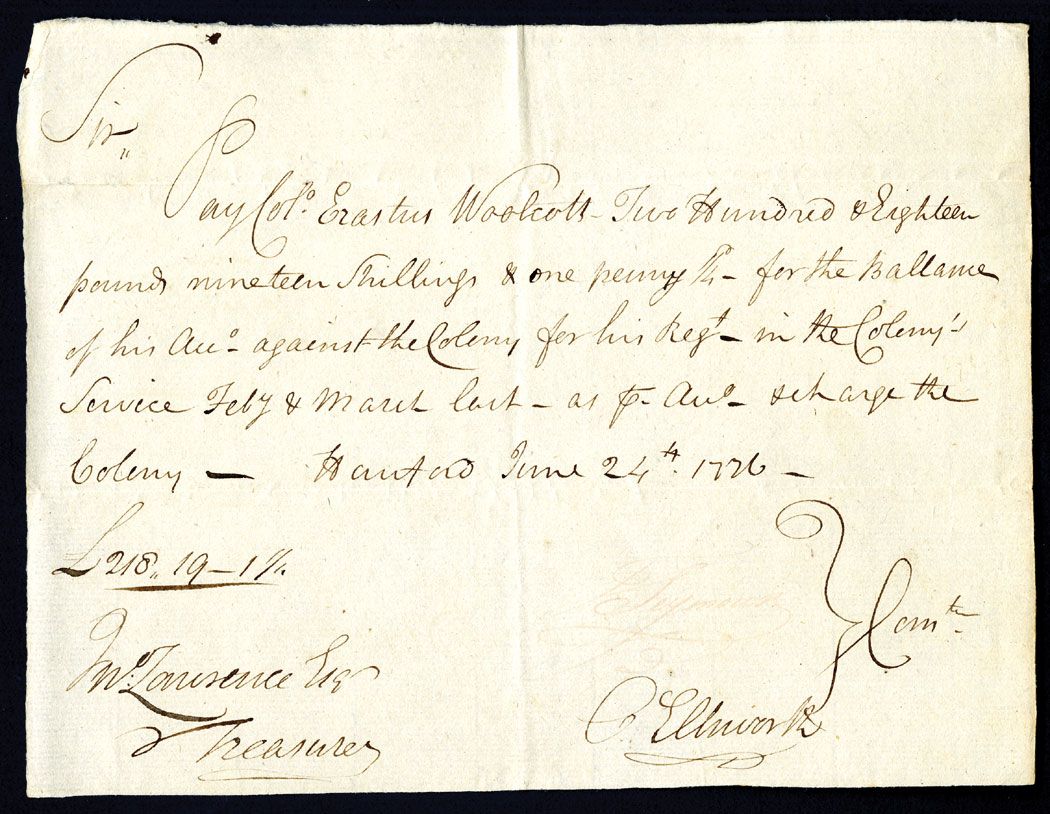 Sir,,
Pay Colº. Erastus Woolcott - Two Hundred & Eighteen
pounds nineteen Shillings & one penny - for the Ballance
of his Accº - against the Colony for his Regt - in the Colony's
Service Feby & March last - as pr Accº - & charge the
Colony — Hartford June 24th. 1776 -
£ 218,, 19 - 1
E Seymour
Comtee
Jnº. Lawrence Esqr
O Ellsworth
Treasurer